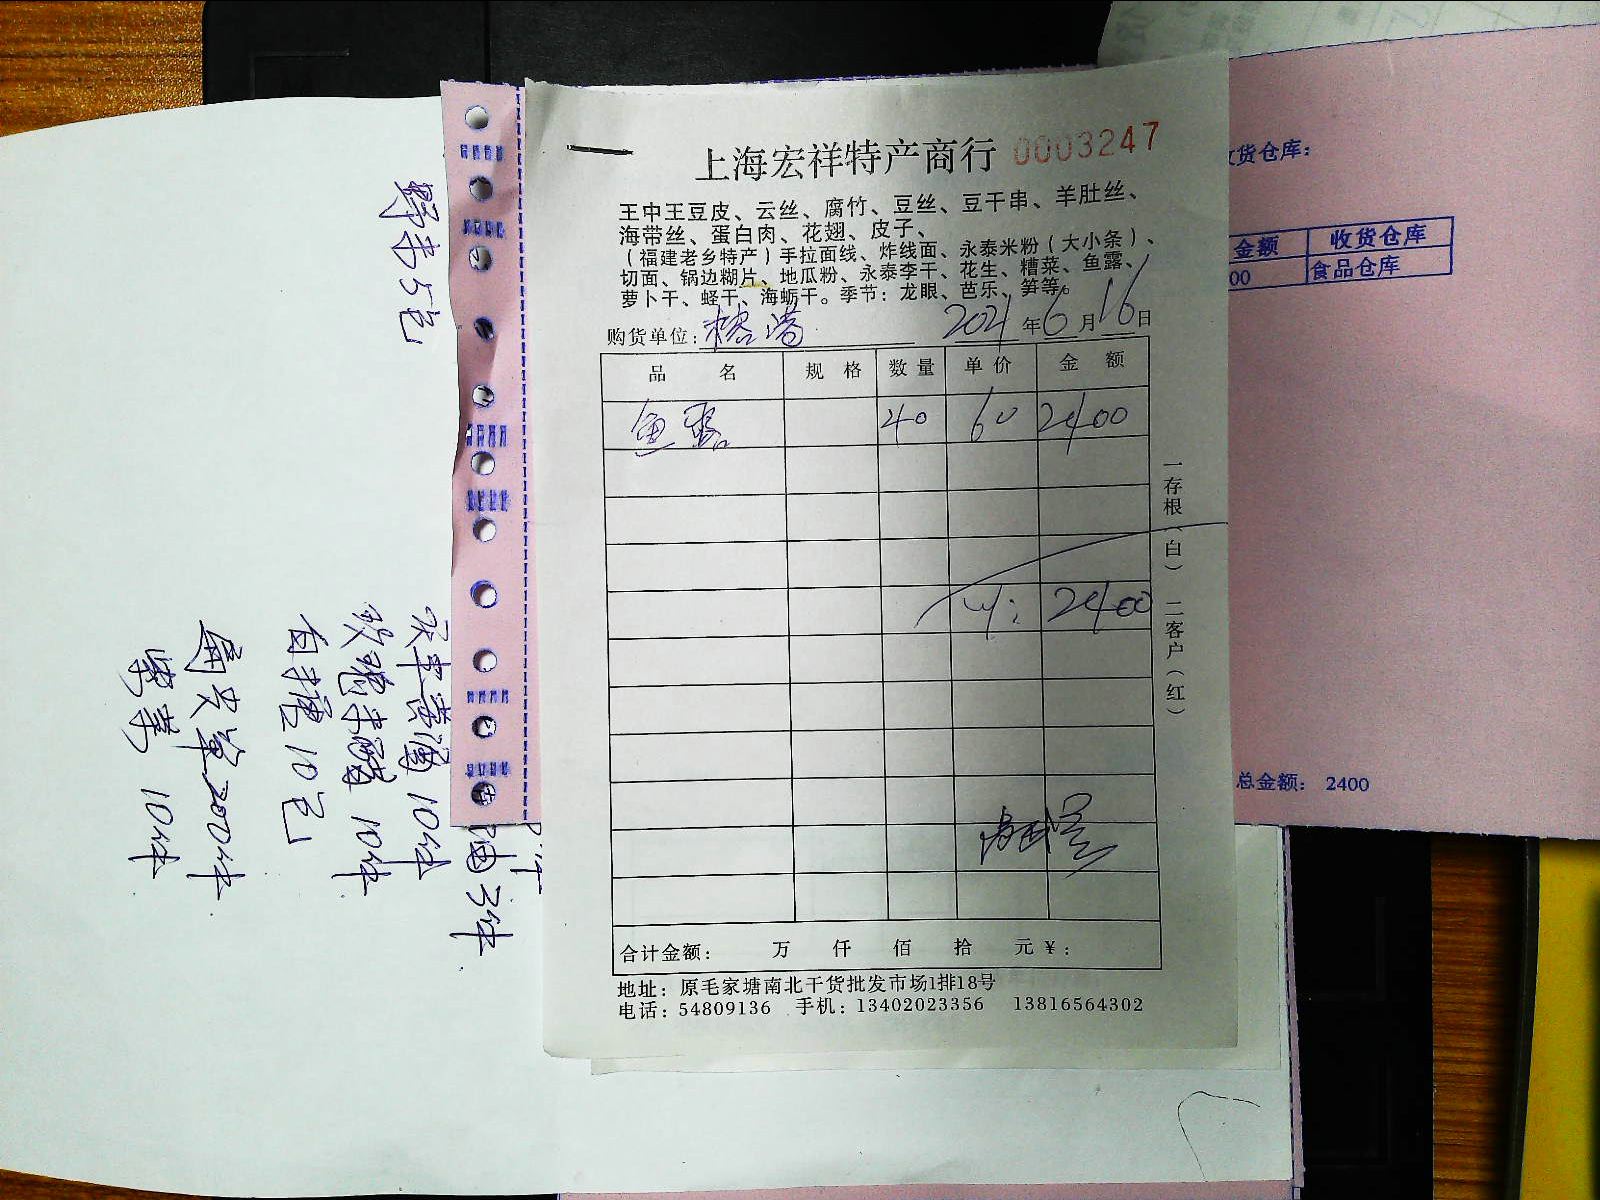 上海宏祥特产商行 0003247
王中王豆皮、云丝、腐竹、豆丝、豆干串、羊肚丝、
海带丝、蛋白肉、花翅、皮子、
（福建老乡特产）手拉面线、炸线面、永泰米粉（大小条）、
切面、锅边糊片、地瓜粉、永泰李干、花生、糟菜、鱼露、
萝卜干、蛏干、海蛎干。季节：龙眼、芭乐、笋等。
购货单位: 榕港 2021年6月16日
品名 规格 数量 单价 金额
鱼露 40 60 2400
2400
合计金额: 万 仟 佰 拾 元¥:
地址: 原毛家塘南北干货批发市场1排18号
电话: 54809136 手机: 13402023356 13816564302
一存根（白） 二客户（红）
收货仓库:
金额 收货仓库
00 食品仓库
总金额: 2400
10件
10件
10包
200件
10件
3件